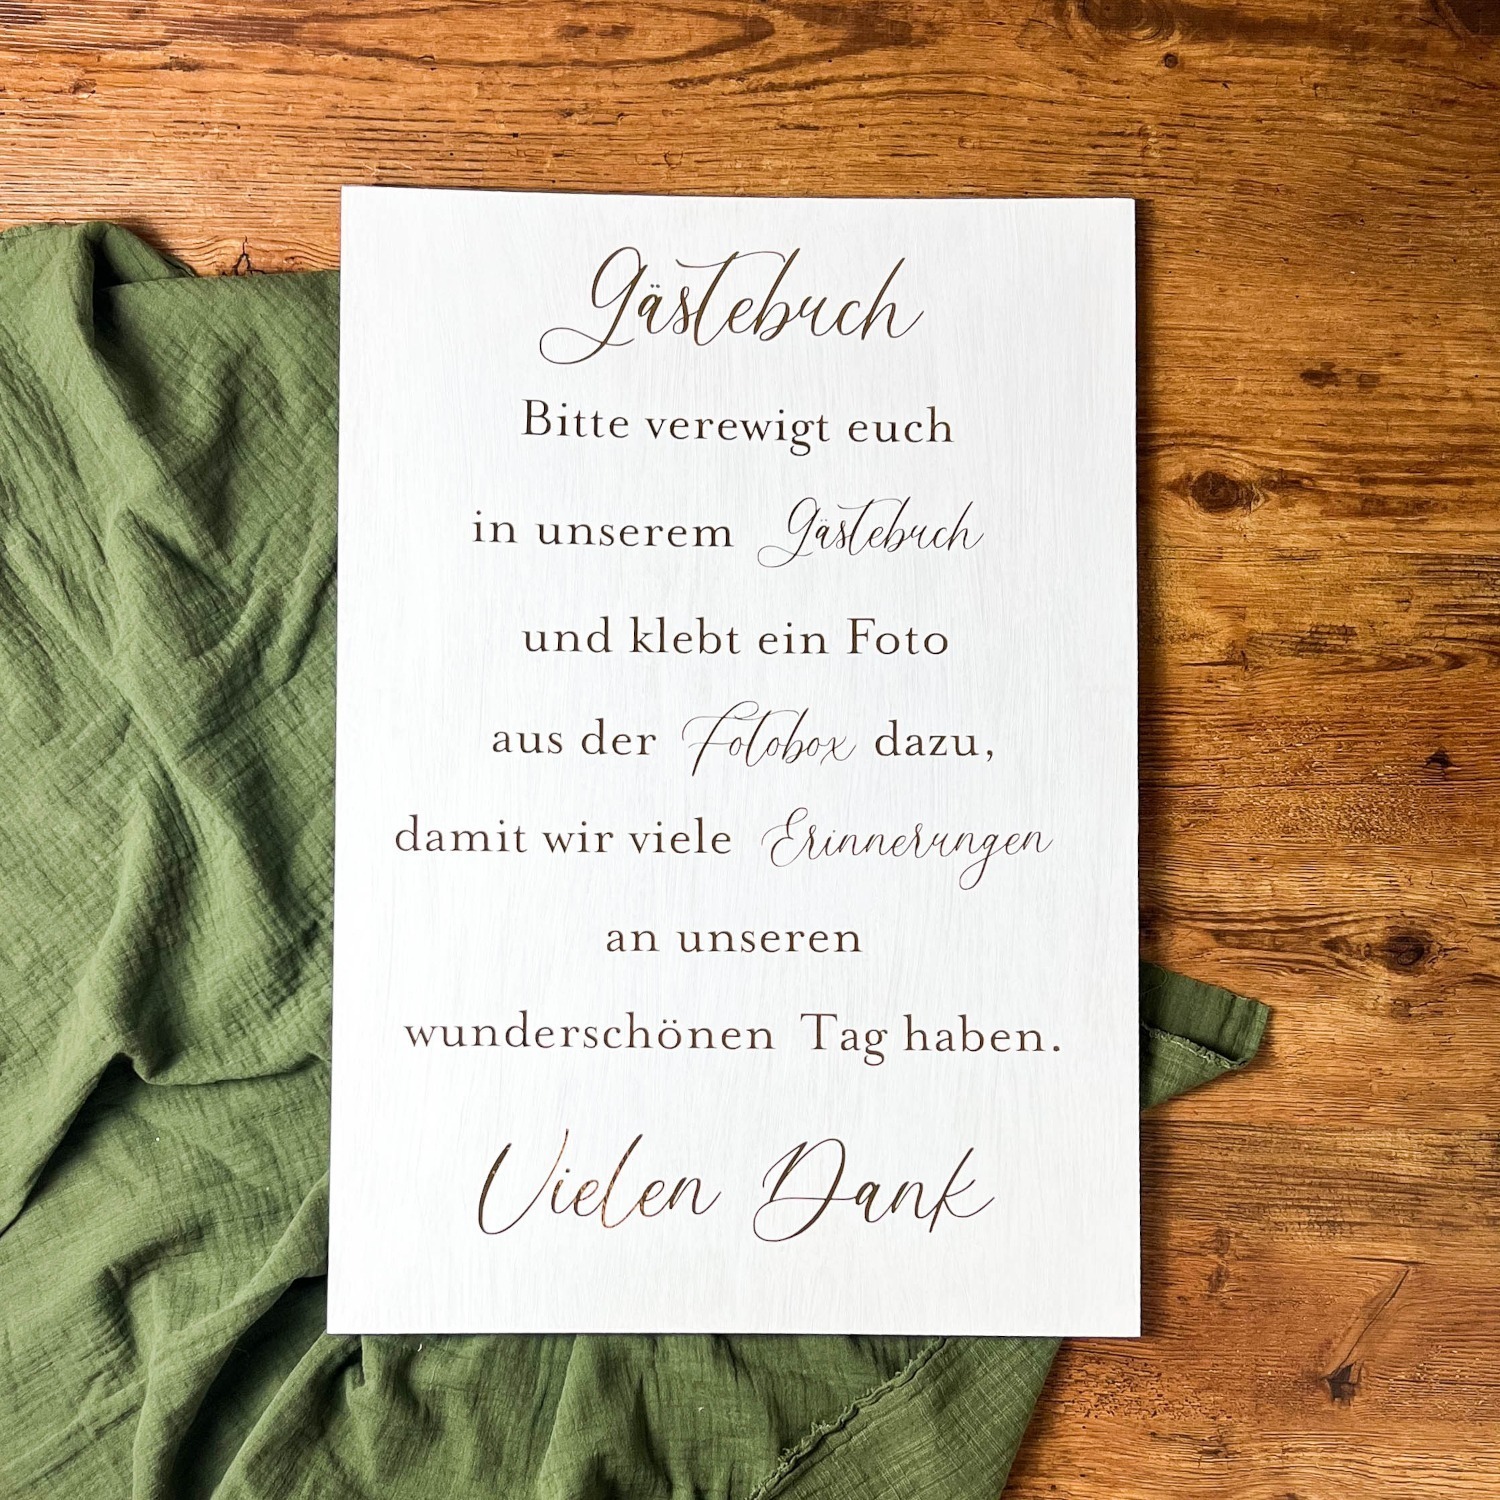 Gästebuch
Bitte verewigt euch
in unserem Gästebuch
und klebt ein Foto
aus der Fotobox dazu,
damit wir viele Erinnerungen
an unseren
wunderschönen Tag haben.
Vielen Dank